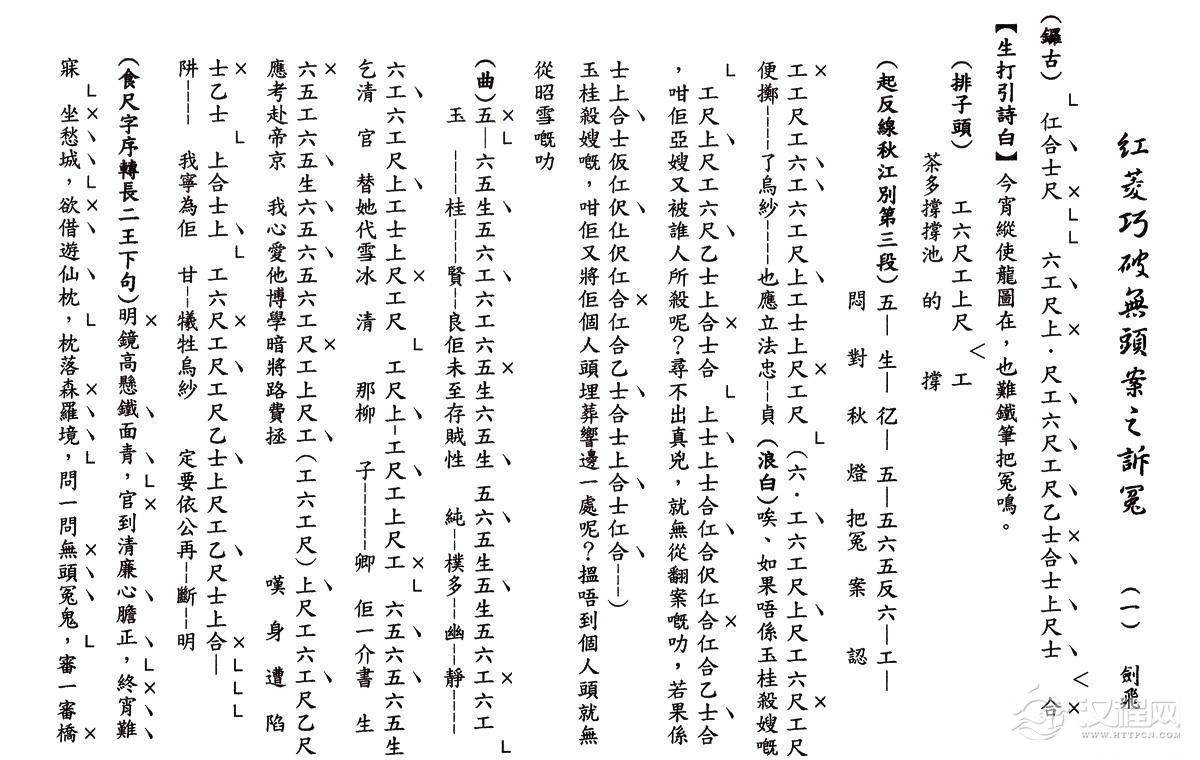 紅菱巧破無頭案之訴冤 (一) 劍飛
(鑼古) 仜合士尺 六工尺上．尺工六尺工尺乙士合士上尺士 合
【生打引詩白】今宵縱使龍圖在，也難鐵筆把冤鳴。
(排子頭) 工六尺工上尺 工
茶多撐撐池 的 撐
(起反線秋江別第三段)五—生—亿—五—五六五反六—工—
悶 對 秋 燈 把冤 案 認
工工尺工六工六工尺上工士上尺工尺 (六．工六工尺上尺工六尺工尺
便擲----了烏紗----也應立法忠--貞 (浪白)唉、如果唔係玉桂殺嫂嘅
工尺上尺工六尺乙士上合士合 上士上士合仜合伬仜合仜合乙士合
，咁佢亞嫂又被誰人所殺呢？尋不出真兇，就無從翻案嘅叻，若果係
士上合士仮仜伬仩伬仜合仜合乙士合士上合士仜合---)
玉桂殺嫂嘅，咁佢又將佢個人頭埋葬響邊一處呢？搵唔到個人頭就無
從昭雪嘅叻
(曲)五—六五生五六工六工六五生六五生 五六五生五生五六工六工
玉 ----桂----賢--良佢未至存賊性 純--樸多--幽--靜----
六工六工尺上工士上尺工尺 工尺上-工尺工上尺工 六五六五六五生
乞清 官 替她代雪冰 清 那柳 子------卿 佢一介書 生
六五工六五生六五六五六工尺工上尺工(工六工尺)上尺工六工尺乙尺
應考赴帝京 我心愛他博學暗將路費拯 嘆 身 遭 陷
士乙士 上合士上 工六尺工尺工尺乙士上尺工乙尺士上合—
阱---- 我寧為佢 甘--犧牲烏紗 定要依公再--斷--明
(食尺字序轉長二王下句)明鏡高懸鐵面青，官到清廉心膽正，終宵難
寐 坐愁城，欲借遊仙枕，枕落森羅境，問一問無頭冤鬼，審一審橋
汉程网
WWW.HTTPCN.COM